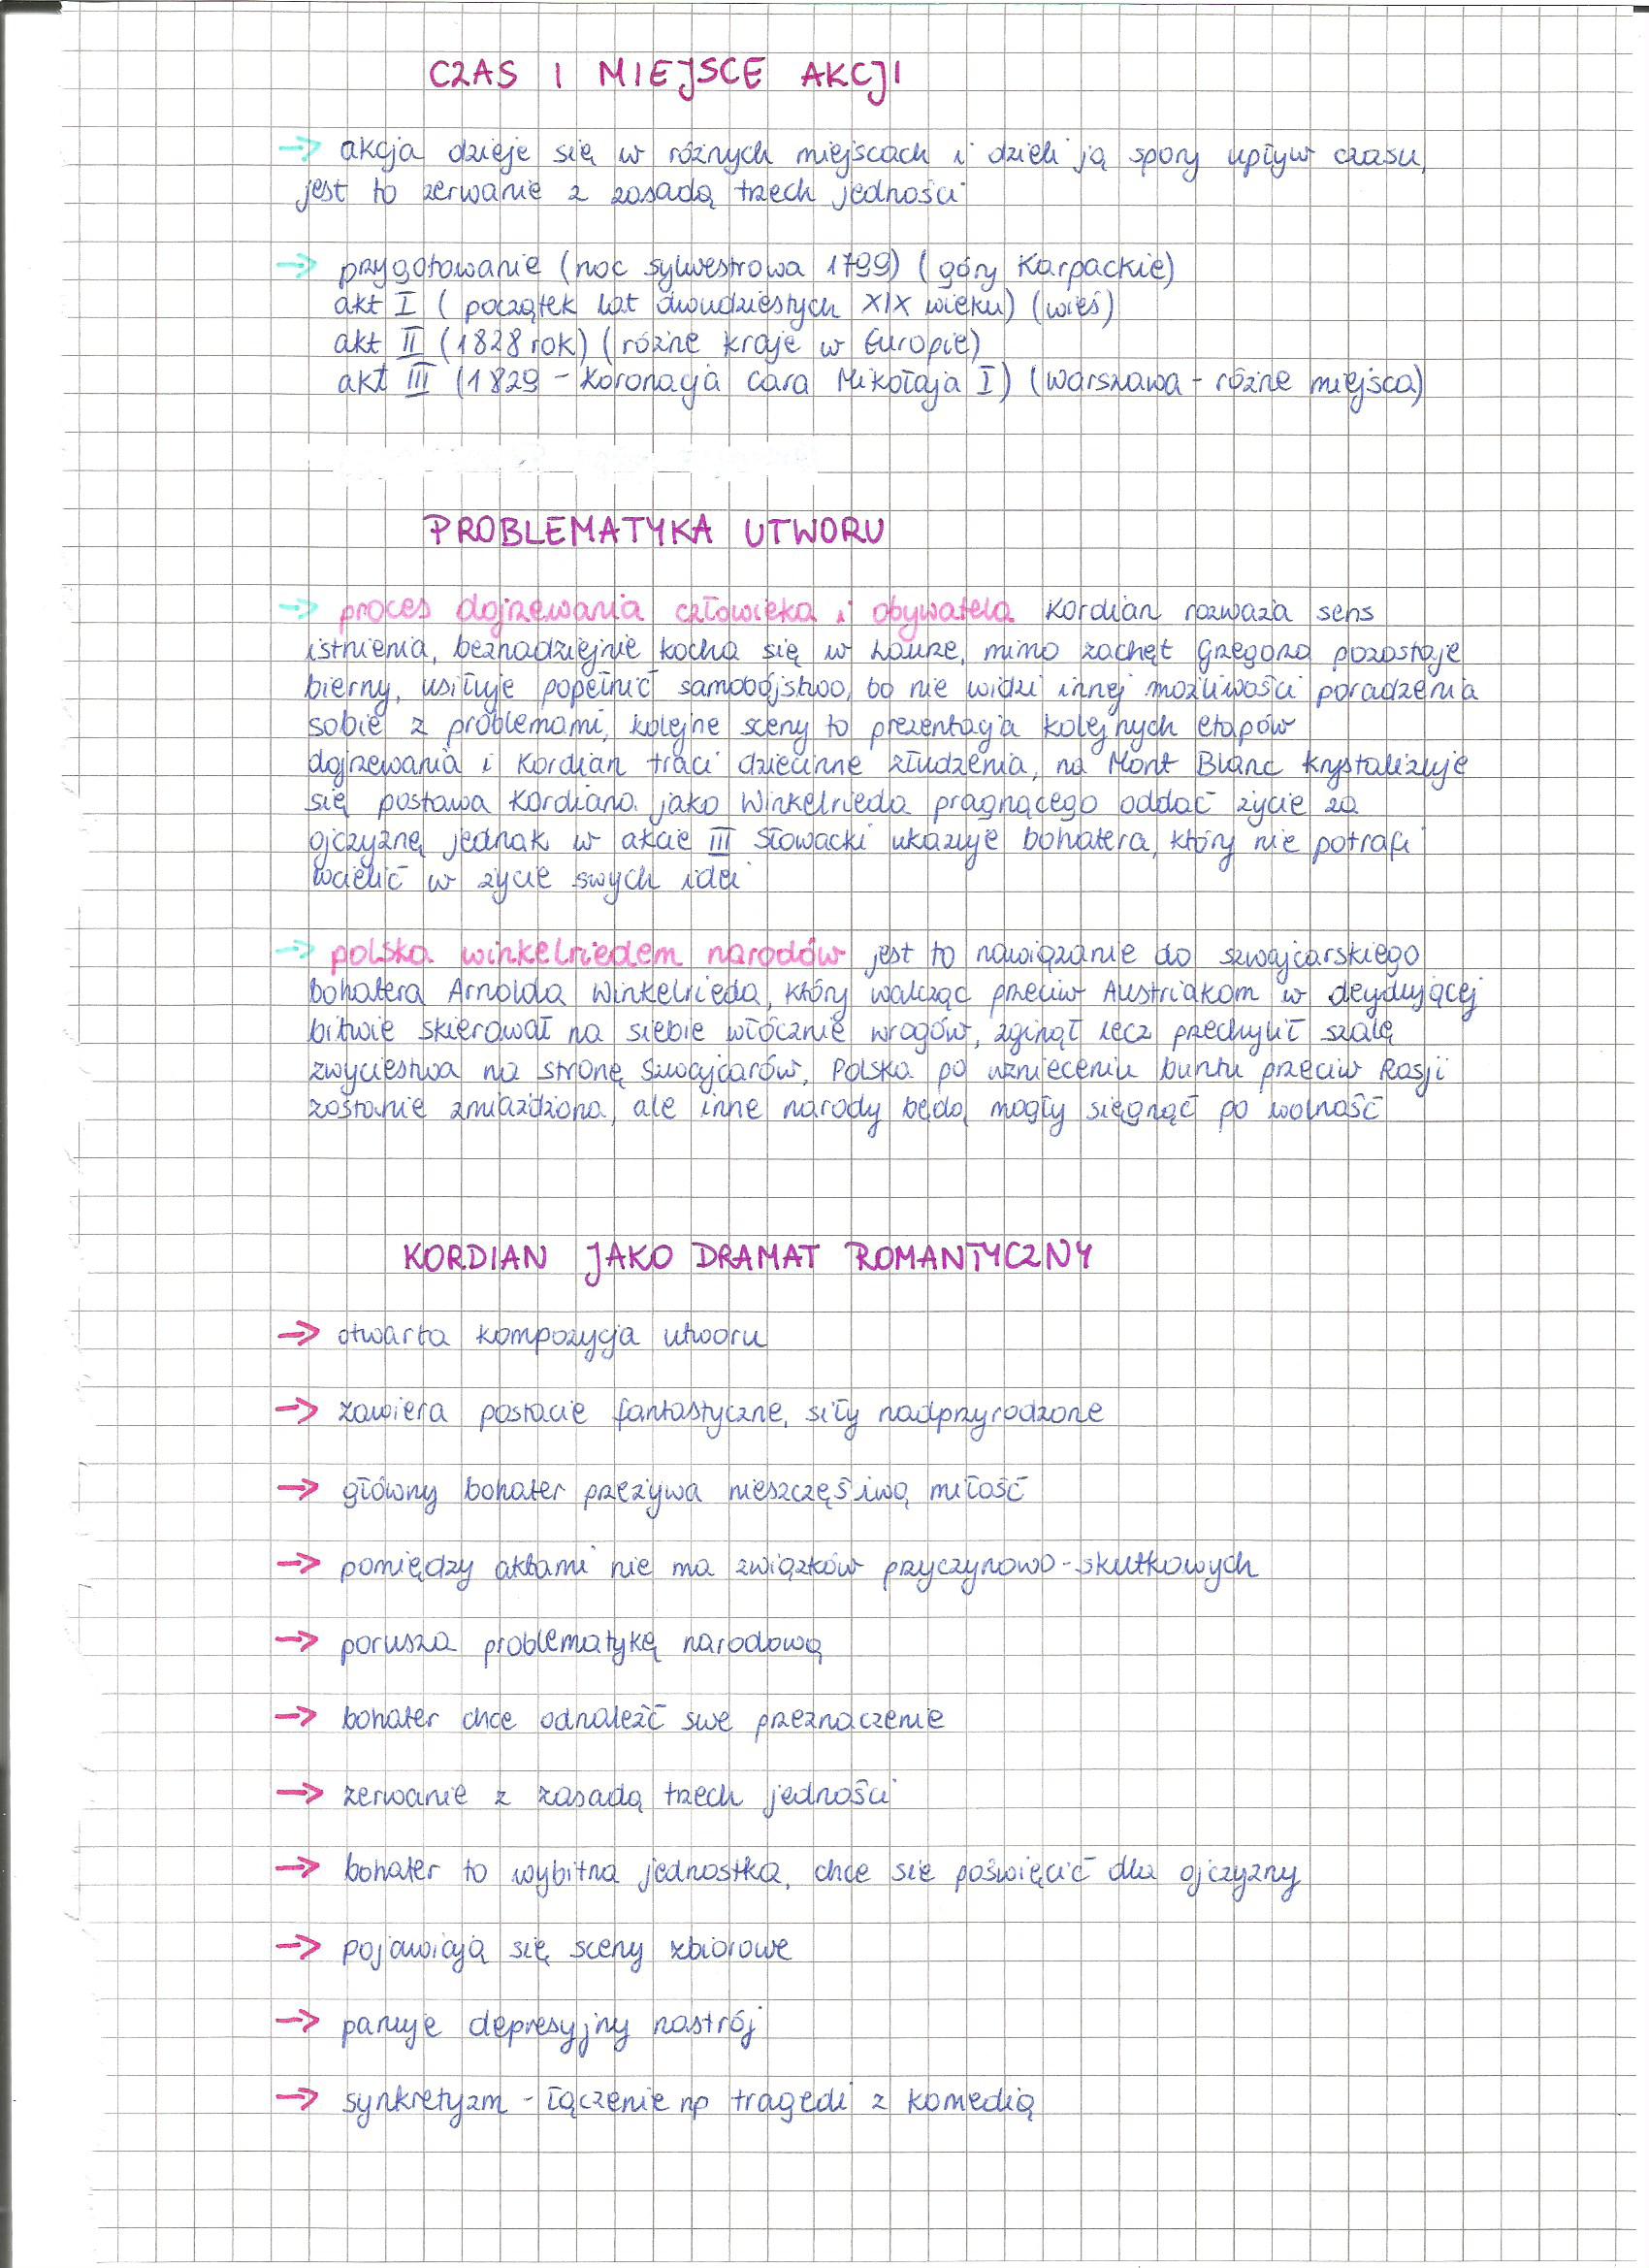 CZAS I MIEJSCE AKCJI
→ akcja dzieje się w różnych miejscach i dzieli ją spory upływ czasu,
jest to zerwanie z zasadą trzech jedności
→ przygotowanie (noc sylwestrowa 1799) (góry Karpackie)
akt I (początek lat dwudziestych XIX wieku) (wieś)
akt II (1828 rok) (różne kraje w Europie)
akt III (1829 - Koronacja cara Mikołaja I) (Warszawa - różne miejsca)
PROBLEMATYKA UTWORU
→ proces dojrzewania człowieka i obywatela Kordian rozważa sens
istnienia, beznadziejnie kocha się w Laurze, mimo zachęt Grzegorza pozostaje
bierny, usiłuje popełnić samobójstwo, bo nie widzi innej możliwości poradzenia
sobie z problemami, kolejne sceny to prezentacja kolejnych etapów
dojrzewania i Kordian traci dziecinne złudzenia, na Mont Blanc krystalizuje
się postawa Kordiana jako Winkelrieda pragnącego oddać życie za
ojczyznę jednak w akcie III Słowacki ukazuje bohatera, który nie potrafi
wcielić w życie swych idei
→ polska winkelriedem narodów jest to nawiązanie do szwajcarskiego
bohatera Arnolda Winkelrieda, który walcząc przeciw Austriakom w decydującej
bitwie skierował na siebie włócznie wrogów, zginął lecz przechylił szalę
zwycięstwa na stronę Szwajcarów, Polska po wznieceniu buntu przeciw Rosji
zostanie zmiażdżona, ale inne narody będą mogły sięgnąć po wolność
KORDIAN JAKO DRAMAT ROMANTYCZNY
→ otwarta kompozycja utworu
→ zawiera postacie fantastyczne, siły nadprzyrodzone
→ główny bohater przeżywa nieszczęśliwą miłość
→ pomiędzy aktami nie ma związków przyczynowo-skutkowych
→ porusza problematykę narodową
→ bohater chce odnaleźć swe przeznaczenie
→ zerwanie z zasadą trzech jedności
→ bohater to wybitna jednostka, chce sie poświęcić dla ojczyzny
→ pojawiają się sceny zbiorowe
→ panuje depresyjny nastrój
→ synkretyzm - łączenie np tragedi z komedią